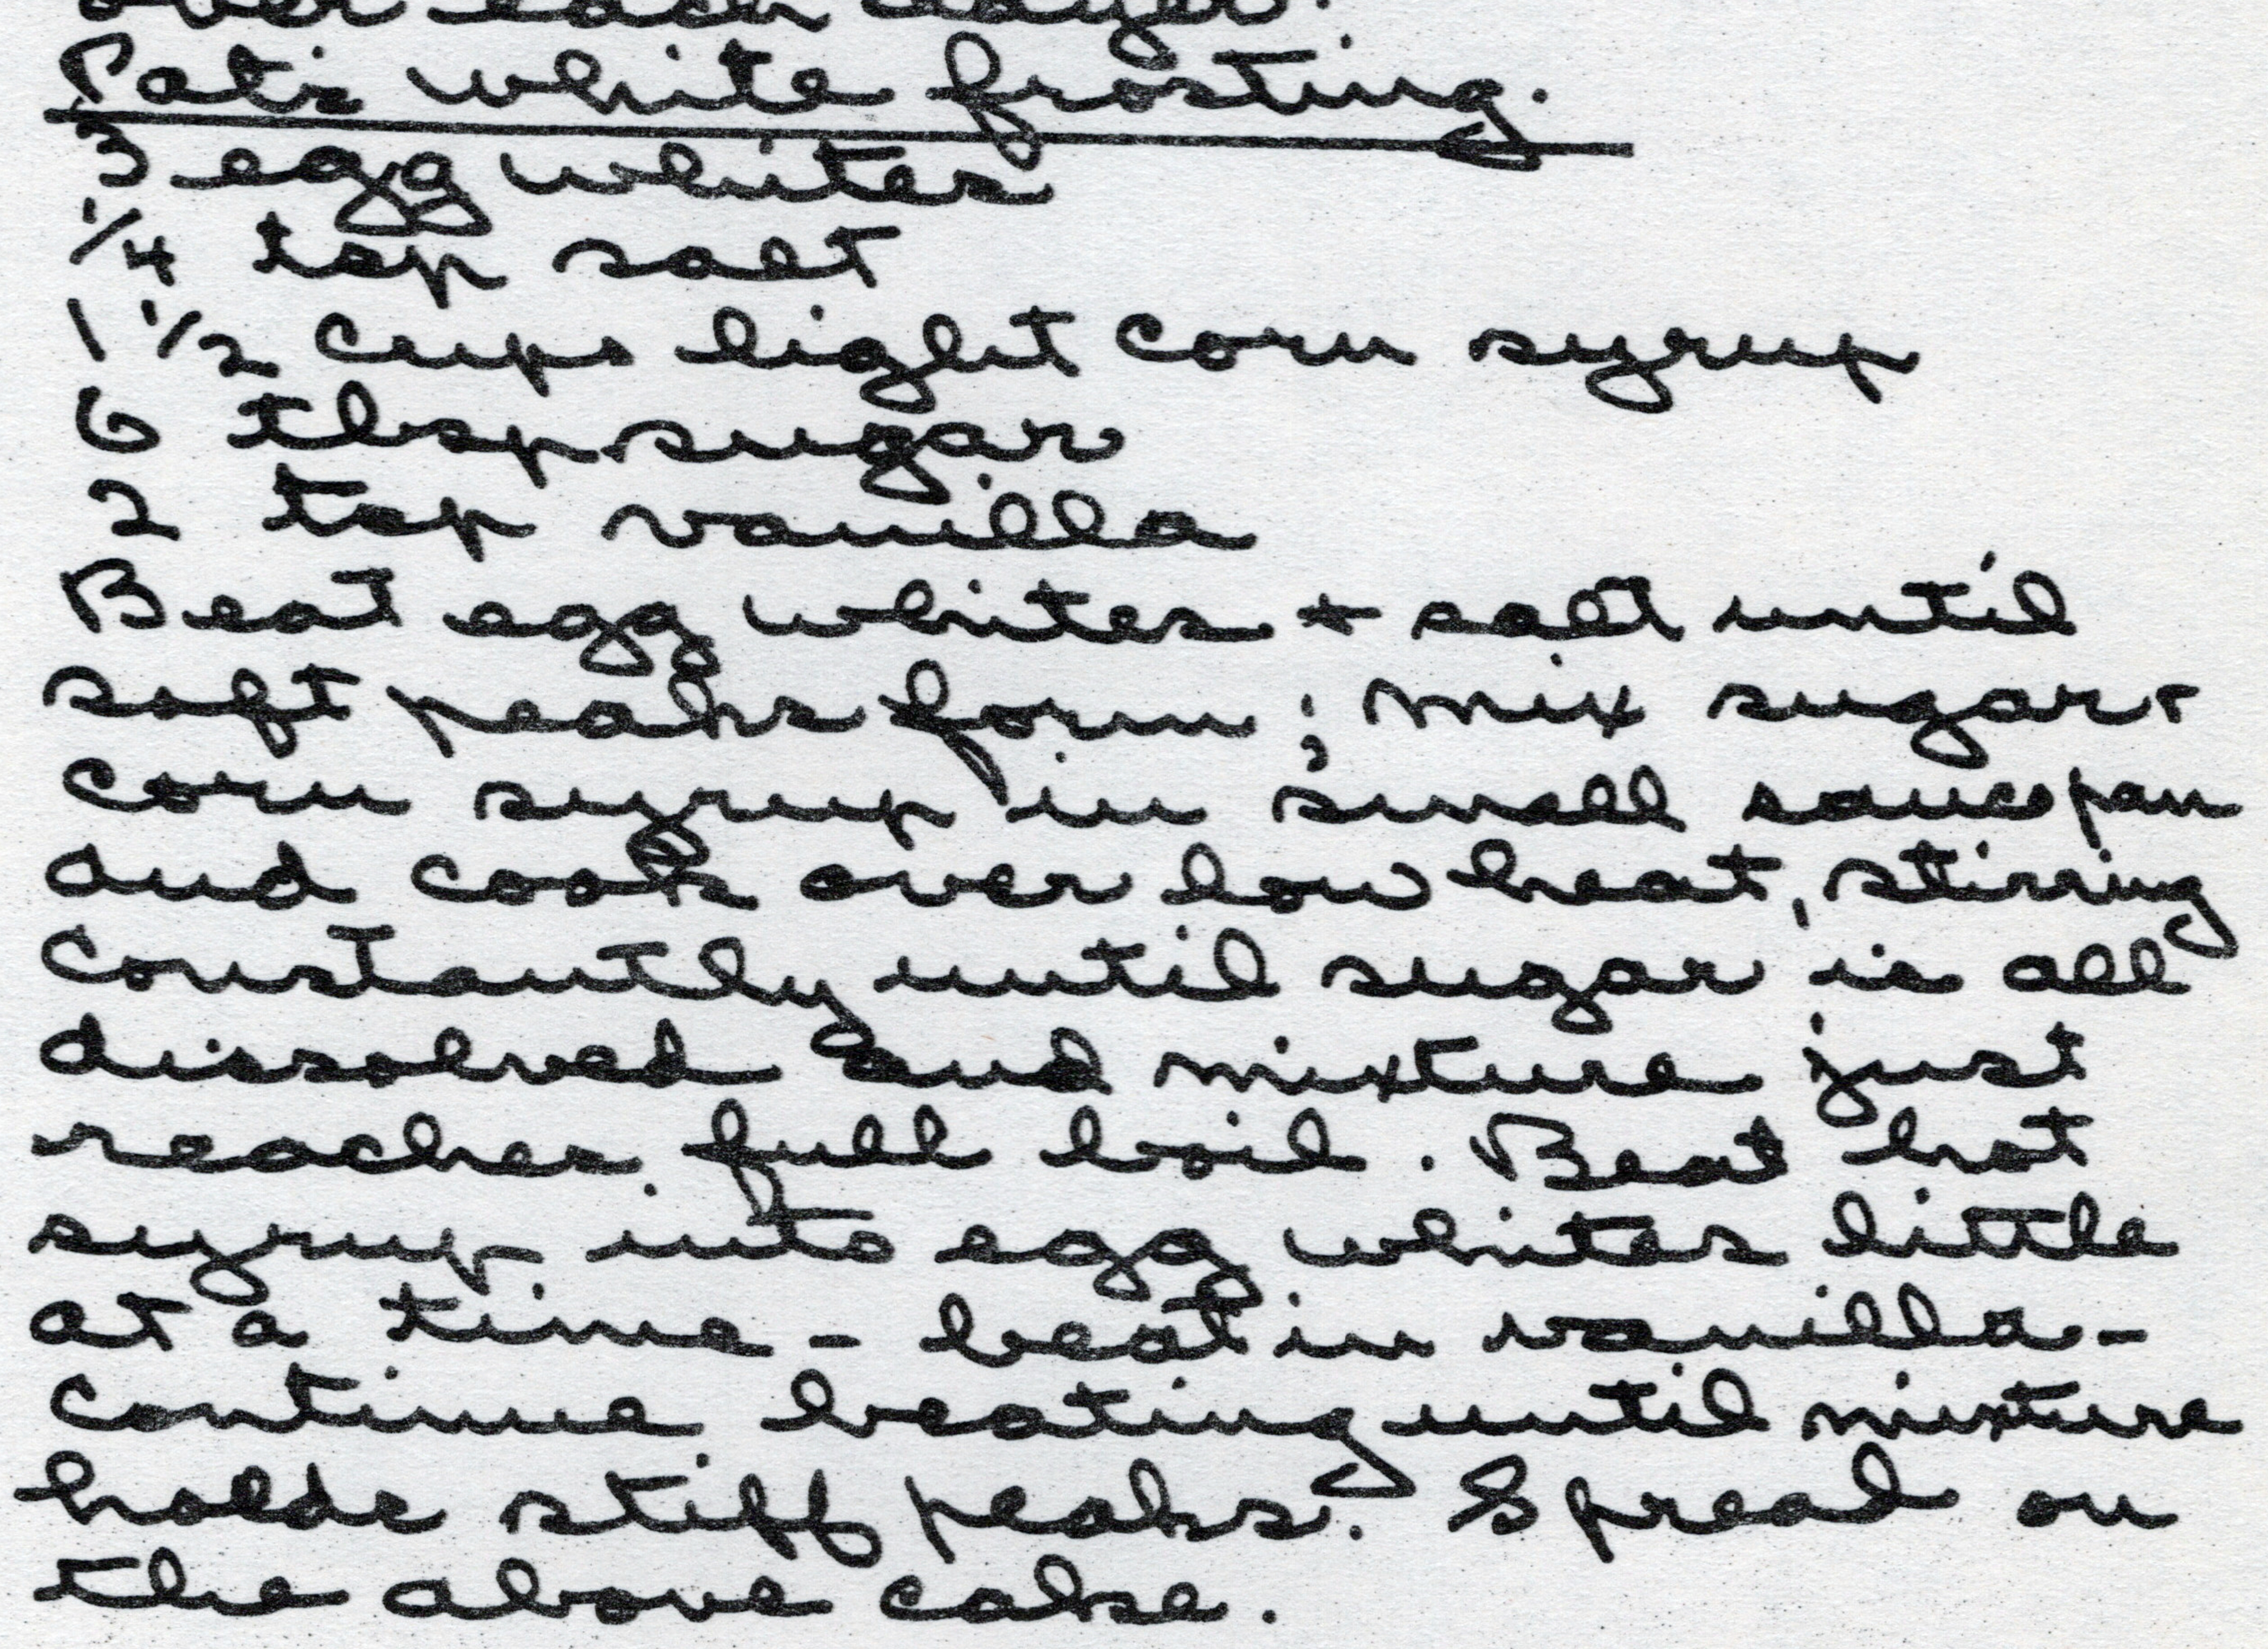 over each layer.
Pat's white frosting.
3 egg whites
1/4 tsp salt
1 1/2 cups light corn syrup
6 tbsp sugar
2 tsp vanilla
Beat egg whites + salt until
soft peaks form; mix sugar +
corn syrup in small saucepan
and cook over low heat, stirring
constantly until sugar is all
dissolved and mixture just
reaches full boil. Beat hot
syrup into egg whites little
at a time - beat in vanilla -
continue beating until mixture
holds stiff peaks. Spread on
the above cake.